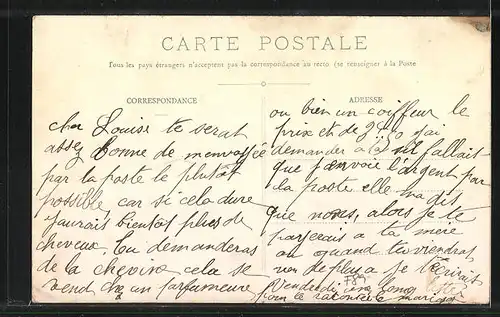 CARTE POSTALE
Tous les pays étrangers n'acceptent pas la correspondance au recto (se renseigner à la Poste
CORRESPONDANCE
cher Louise te serat
assez bonne de
par la poste le plutôt
possible, car si cela dure
j'aurais bientôt plus de
cheveux. Tu demanderas
de la cela se
vend chez un parfumeure
ADRESSE
ou bien un coiffeur le
prix et de j'ai
demander à sil fallait
que j'envoie l'argent par
la poste. elle ma dit
que alors je le
a ta mère
ou quand tu viendrat,
rien de plus a je
Vendredi une long
pour te raconter le mariage
789